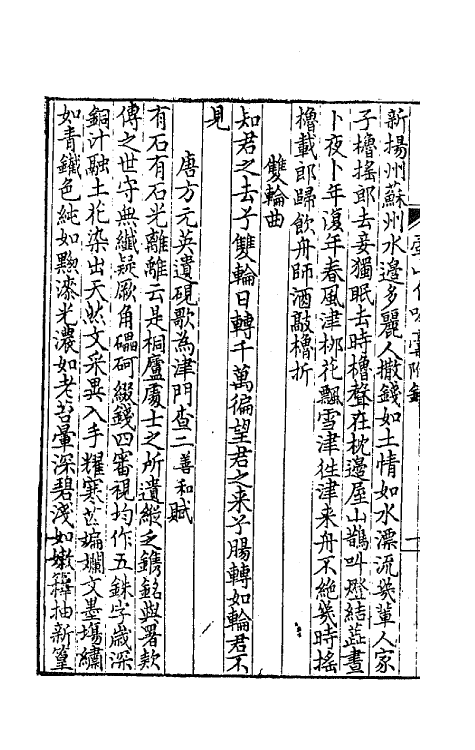 新揚州蘇州水邊多麗人撒錢如土情如水漂流幾輩人家
子櫓搖郎去妾獨眠去時櫓聲在枕邊屋山鵲叫燈結蕋晝
卜夜卜年復年春風津柳花飄雪津往津来舟不絶幾時搖
櫓載郎歸飲舟師酒敲櫓折
雙輪曲
知君之去兮雙輪日轉千萬徧望君之来兮腸轉如輪君不
見
唐方元英遺硯歌為津門查二善和賦
有石有石光離離云是桐廬處士之所遺緞之鐫銘與署款
傳之世守典纎疑厥角礧砢綴錢四審視均作五銖字歲深
銅汁融土花染出天然文采異入手耀寒芒斒斕文墨塲繡
如青鐵色純如黝漆光濃如老苔暈深碧淺如嫩籜抽新篁